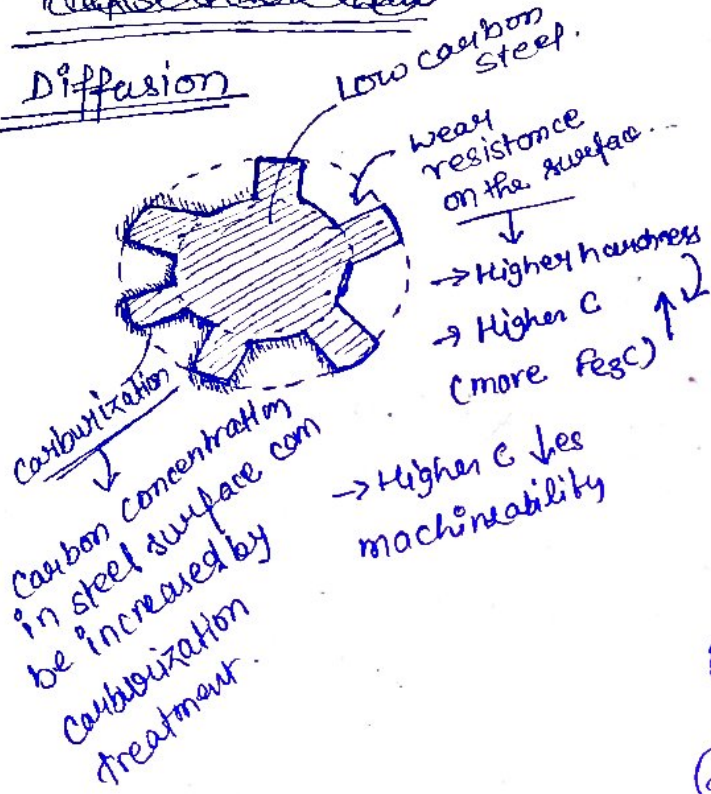 Diffusion
Low carbon
steel.
wear
resistance
on the surface...
→ Higher hardness
→ Higher C
(more Fe3C)
→ Higher C ↓es
machineability
carburization
carbon concentration
in steel surface can
be increased by
carburization
treatment.